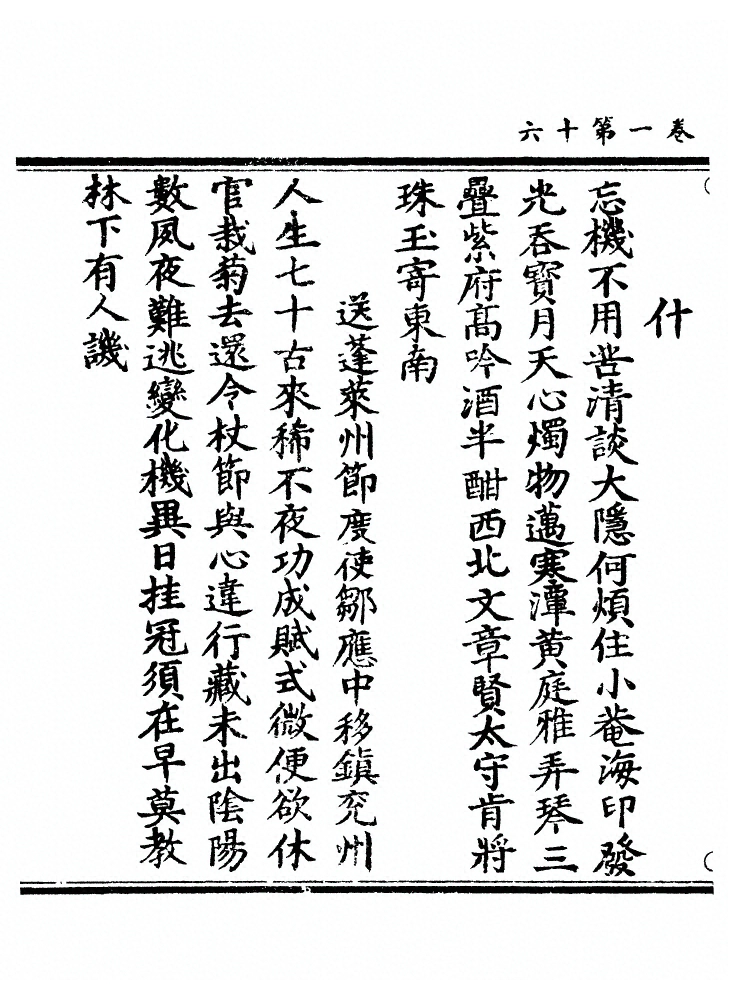 卷一第十六
什
忘機不用苦清談大隱何煩住小菴海印發
光吞寶月天心燭物邁寒潭黃庭雅弄琴三
疊紫府高吟酒半酣西北文章賢太守肯將
珠玉寄東南
送蓬萊州節度使鄒應中移鎮兖州
人生七十古來稀不夜功成賦式微便欲休
官栽菊去還令杖節與心違行藏未出陰陽
數夙夜難逃變化機異日挂冠須在早莫教
林下有人譏